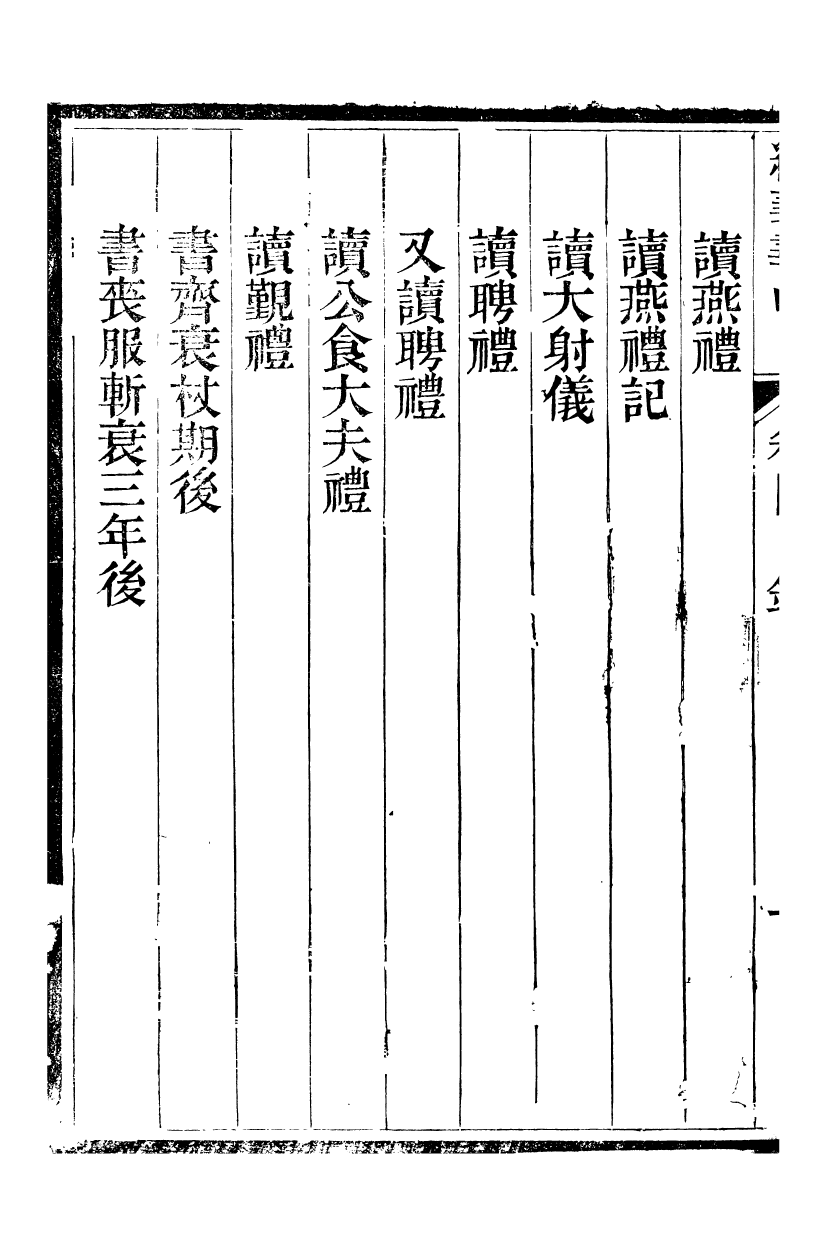 讀燕禮
讀燕禮記
讀大射儀
讀聘禮
又讀聘禮
讀公食大夫禮
讀覲禮
書齊衰杖期後
書喪服斬衰三年後